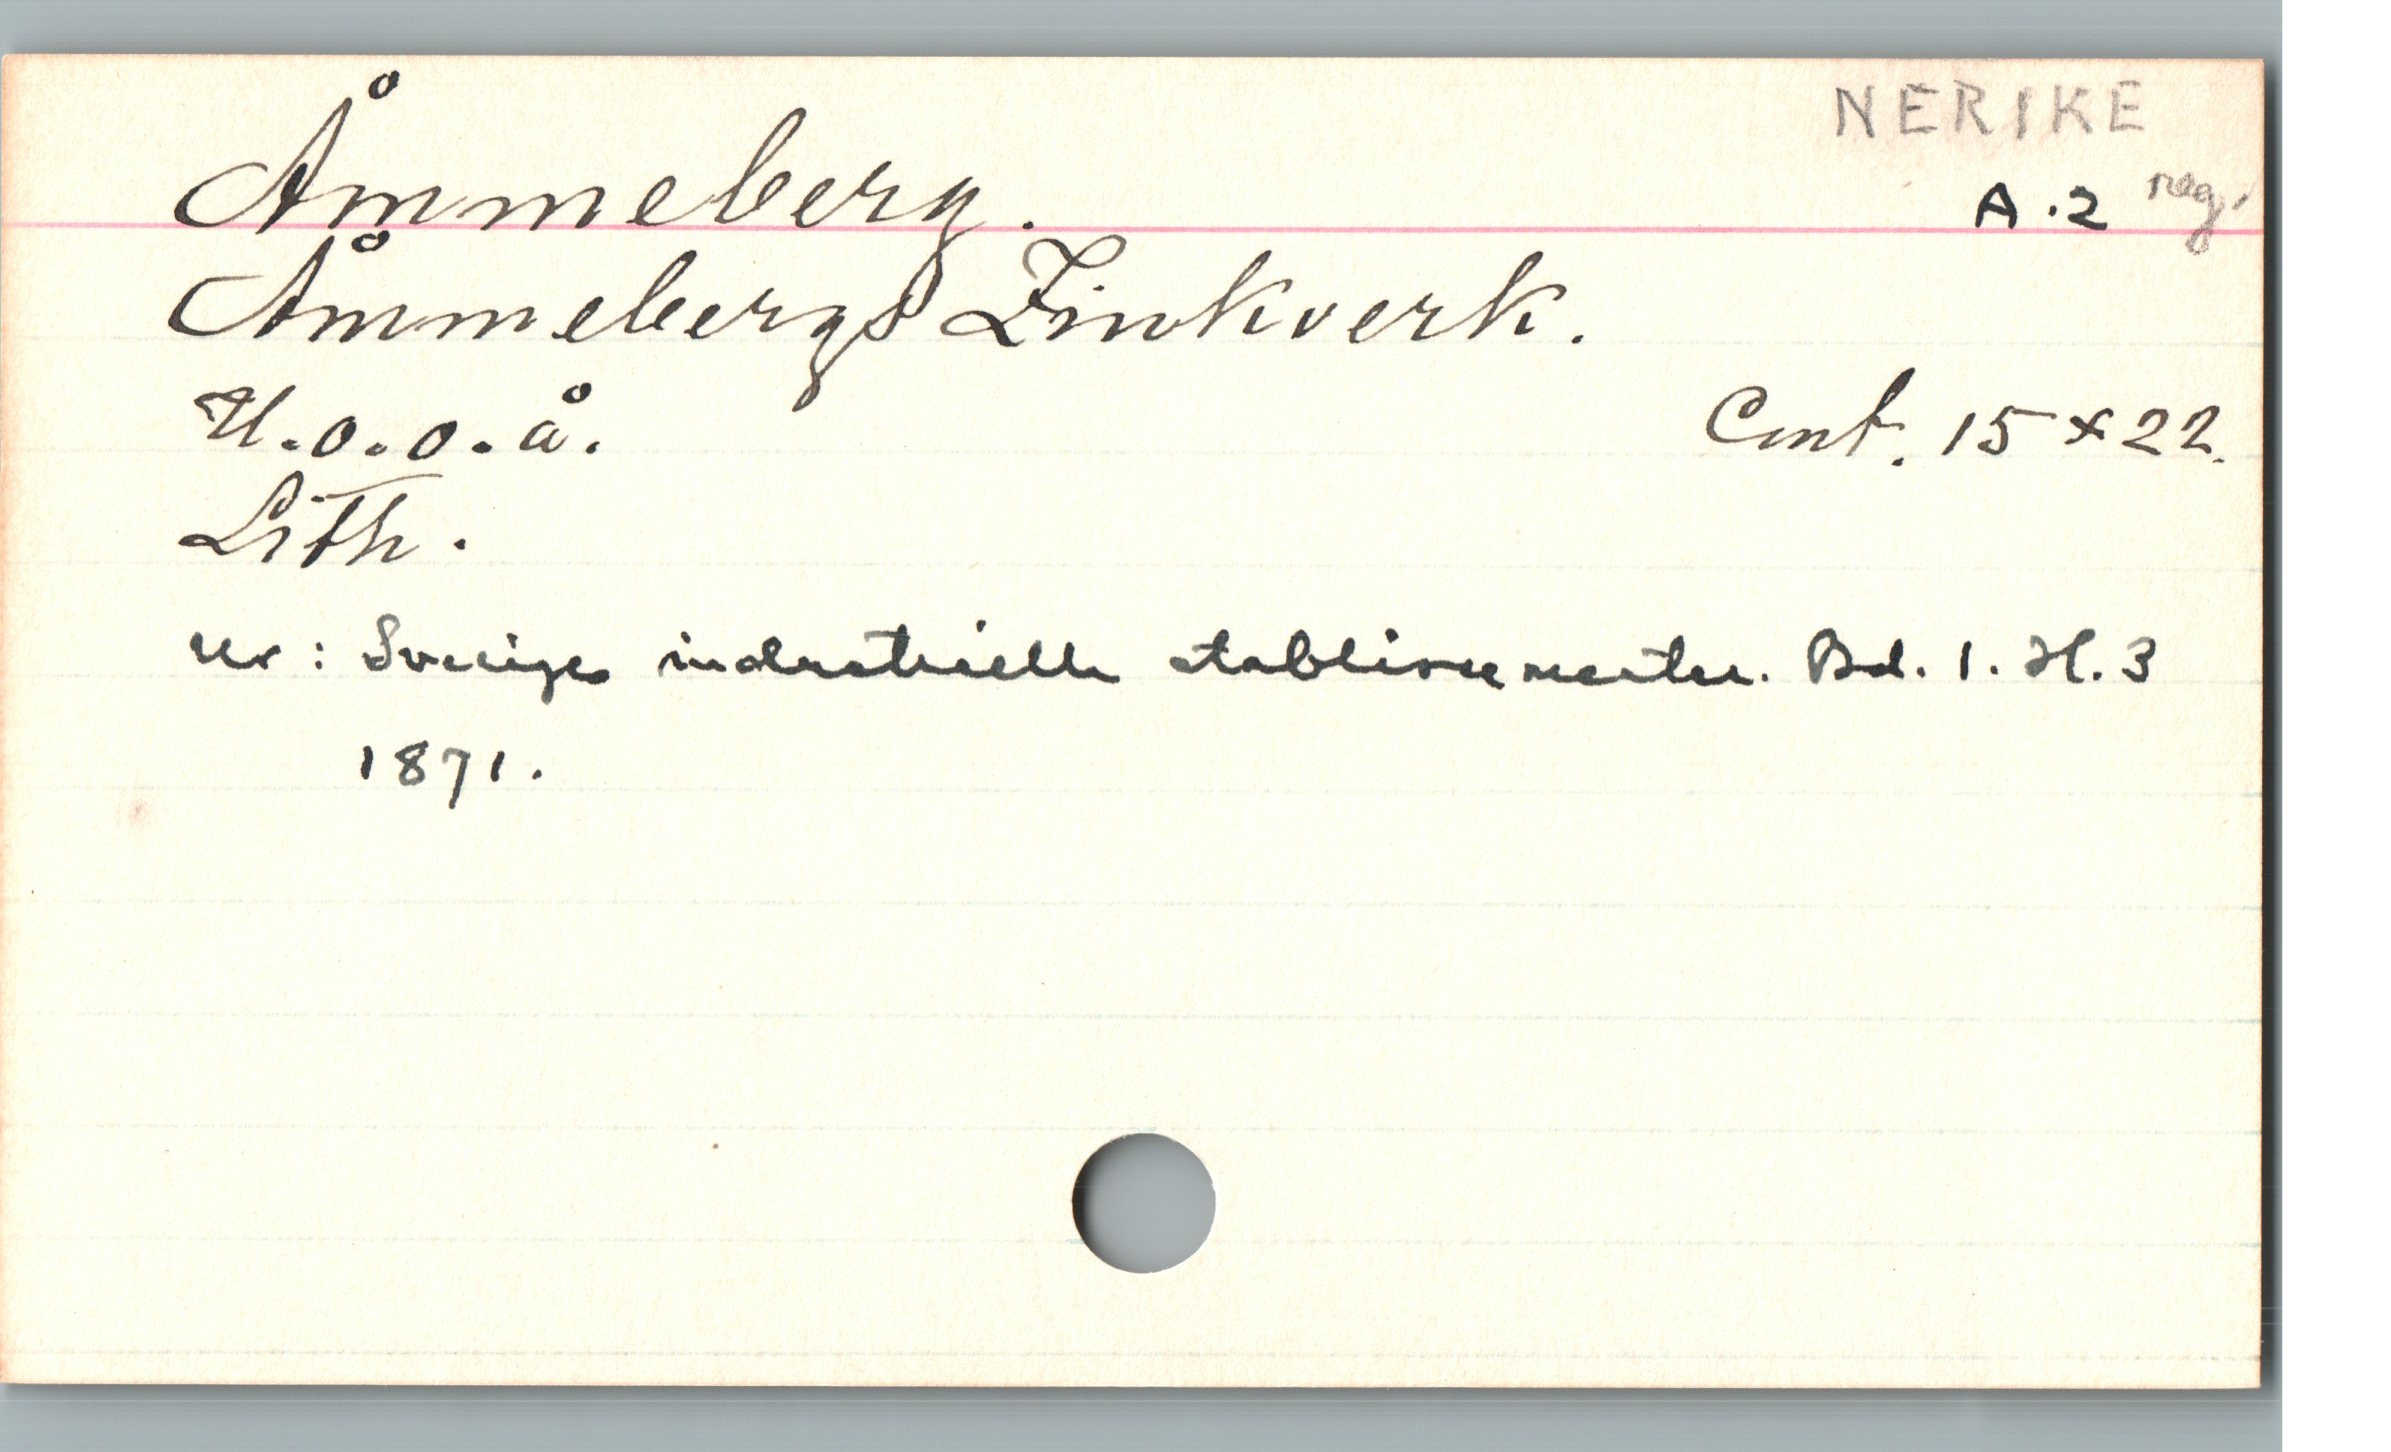 NERIKE
Åmmeberg. A.2 reg.
Åmmebergs Zinkverk.
U.o.o.å. Cmt. 15 x 22.
Lith.
ur: Sveriges industriella etablissementer. Bd. 1. H. 3
1871.